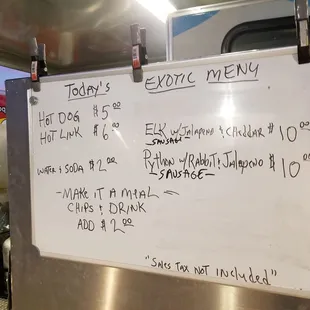 Today's
HOT DOG $5.00
HOT LINK $6.00
WATER & SODA $2.00
- MAKE IT A MEAL -
CHIPS & DRINK
ADD $2.00
EXOTIC MENU
ELK w/ Jalapeno & CHEDDAR $10.00
SAUSAGE
Python w/ Rabbit & Jalapeno $10.00
- SAUSAGE -
"SALES TAX NOT INCLUDED"